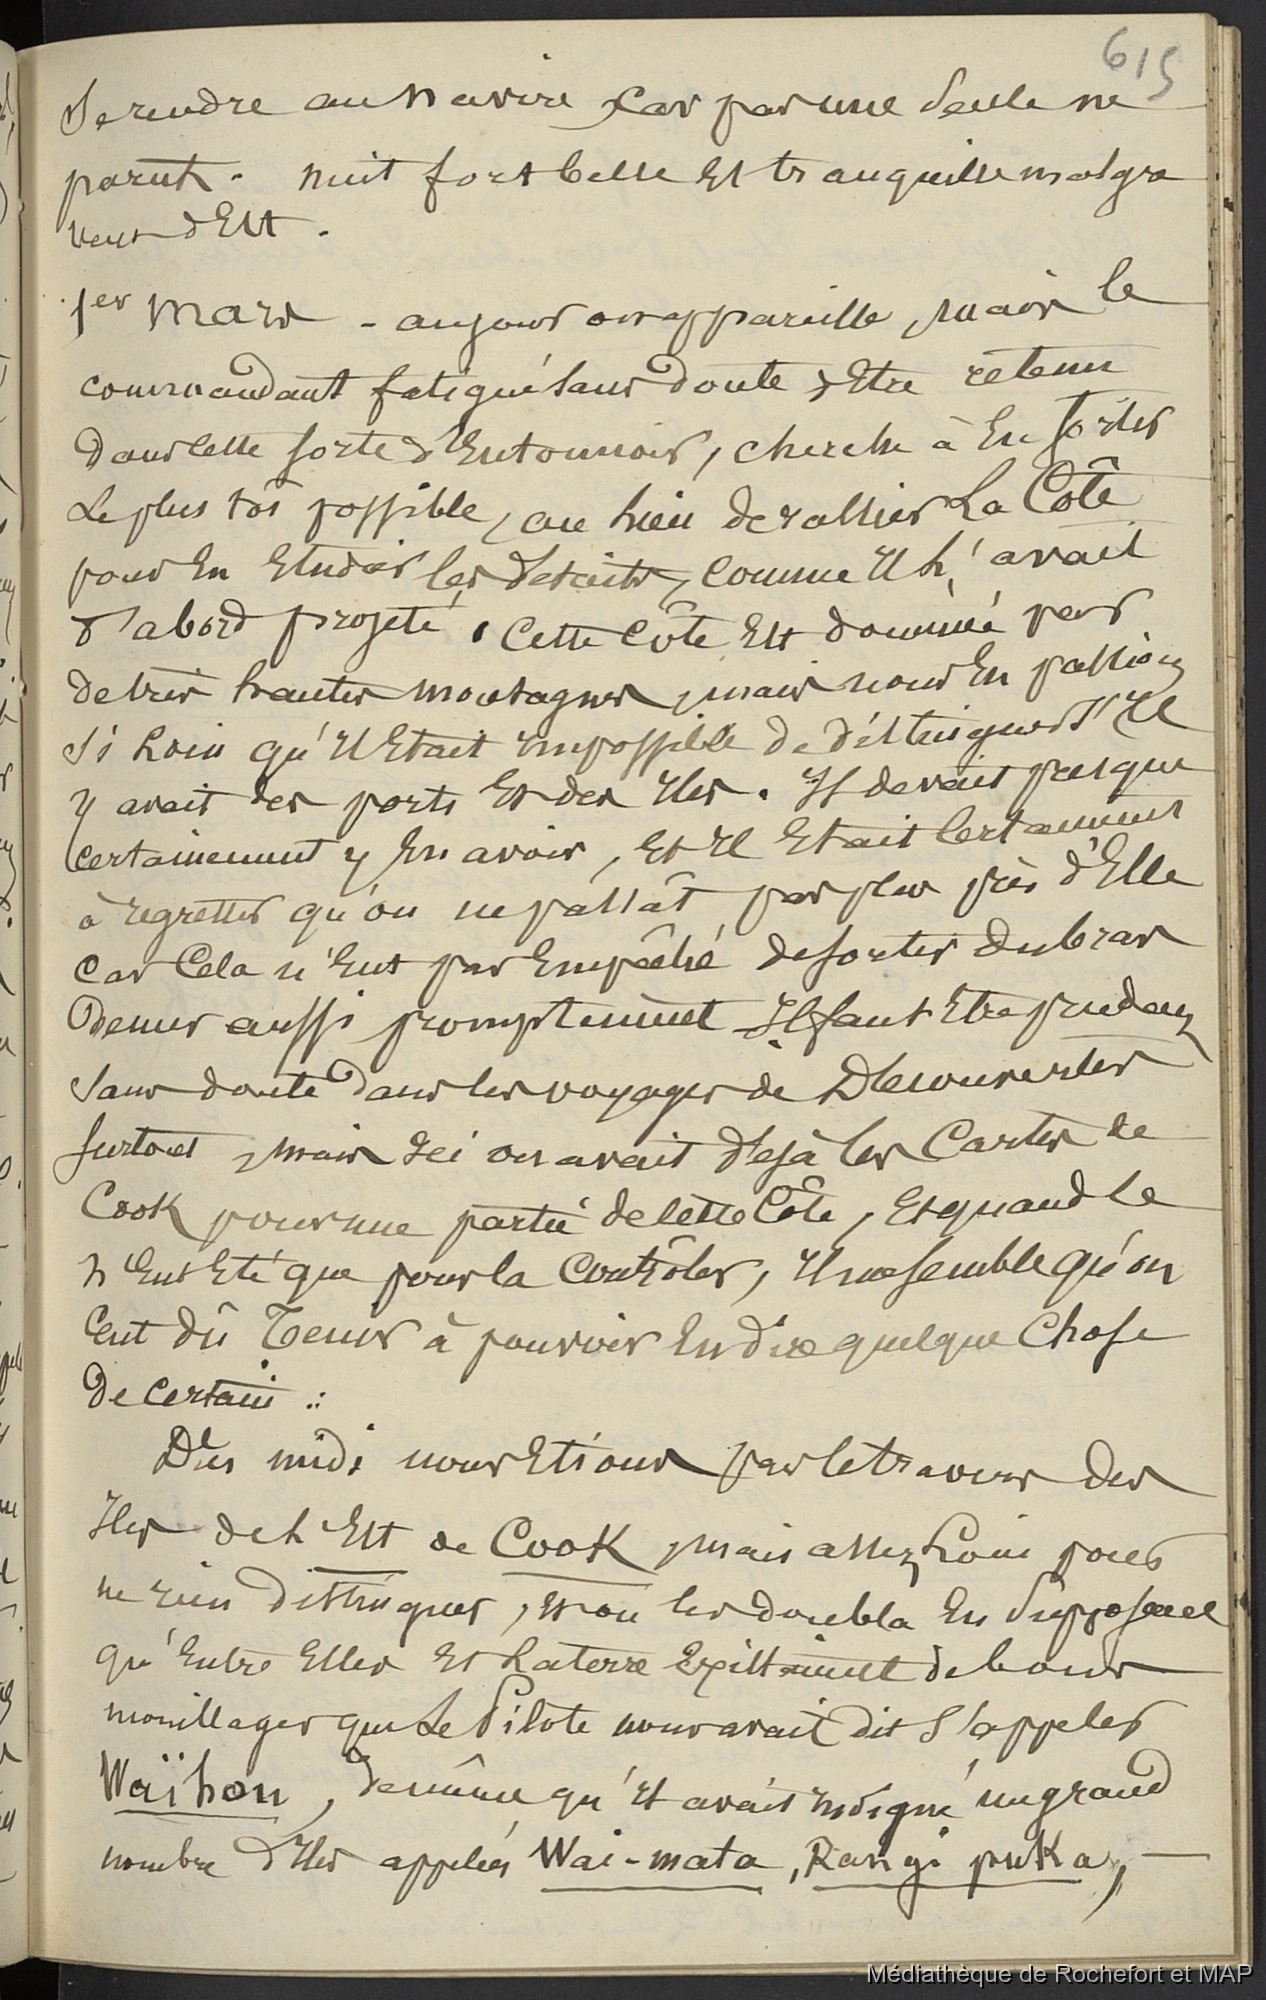 615
Se rendre au navire, car pas une seule ne
parut. nuit fort belle Et tranquille malgré
vent d'Est.
1er mars - au jour on appareille, mais le
commandant fatigué sans doute d'Etre retenu
dans cette sorte d'Entonnoir, cherche à En sortir
le plus tôt possible, au lieu de rallier La Côte
pour En Etudier les détails, comme Il l'avait
d'abord projeté. Cette Côte Est dominée par
de très hautes montagnes, mais nous En passions
si loin qu'Il Etait Impossible de distinguer s'Il
y avait des ports Et des Iles. Il devait presque
certainement y En avoir, Et Il Etait certainement
à regretter qu'on ne passât pas plus près d'Elle
car Cela n'Eut pas Empêché de sortir du bras
de mer aussi promptement. Il faut Etre prudent
sans doute dans les voyages de Découvertes
surtout, mais Ici on avait déjà les Cartes de
Cook pour une partie de cette Côte, Et quand ce
n'Eut Eté que pour la Contrôler, Il me semble qu'on
Eut dû Tenir à pouvoir En dire quelque Chose
De certain.
Dès midi nous Etions par le travers des
Iles de l'Est de Cook, mais assez Loin pour
ne rien distinguer, Et on les doubla En supposant
qu'Entre Elles Et La terre Existaient de bons
mouillages que Le Pilote nous avait dit s'appeler
Waïhou, de même qu'Il avait Indiqué un grand
nombre d'Iles appelées Wai-mata, Rangi puka,
Médiathèque de Rochefort et MAP